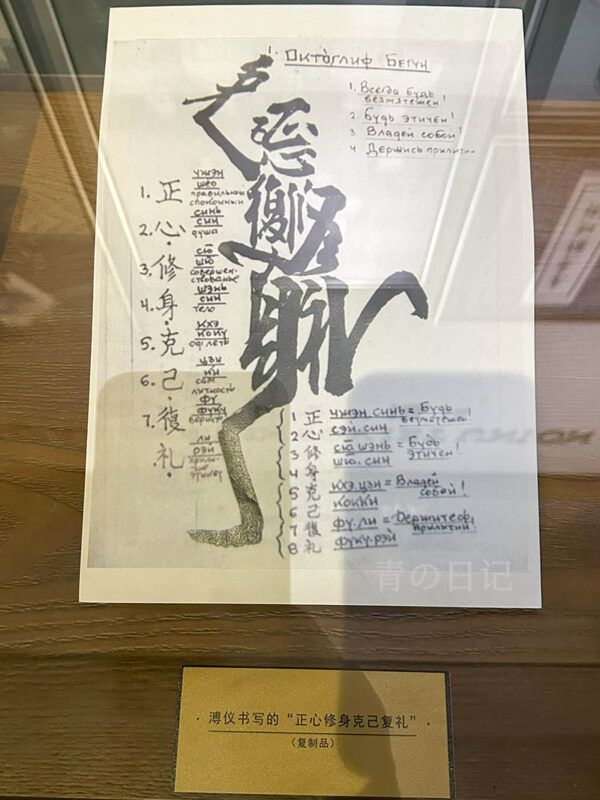 Октоглиф Бегун
1. Всегда будь
безмятежен!
2 Будь этичен!
3 Владей собой!
4 Держись
1. 正
чжэн
сёо
спокойный
2. 心
синь
син
душа
3. 修
сю
шю
совершен-
ствованье
4. 身
шэнь
син
тело
5. 克
кхэ
коку
6. 己
цзи
ки
сам
личность
7. 復
фу
фуку
礼
ли
рэй
1 正
2 心
3 修
4 身
5 克
6 己
7 復
8 礼
чжэн.синь = Будь
безмятежен!
сэй.син
сю шэнь = Будь
этичен!
шю.син
кхэ.цзи = Владей
собой!
кокки
фу.ли =
фуку.рэй
青の日记
· 溥仪书写的“正心修身克己复礼” ·
（复制品）